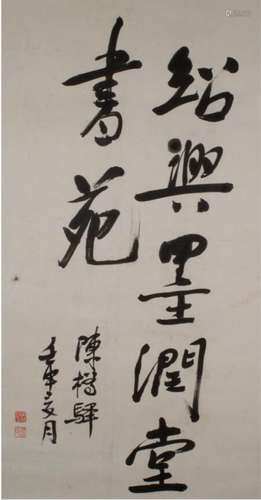 紹興墨潤堂
書苑
陳樹驊
壬申交月